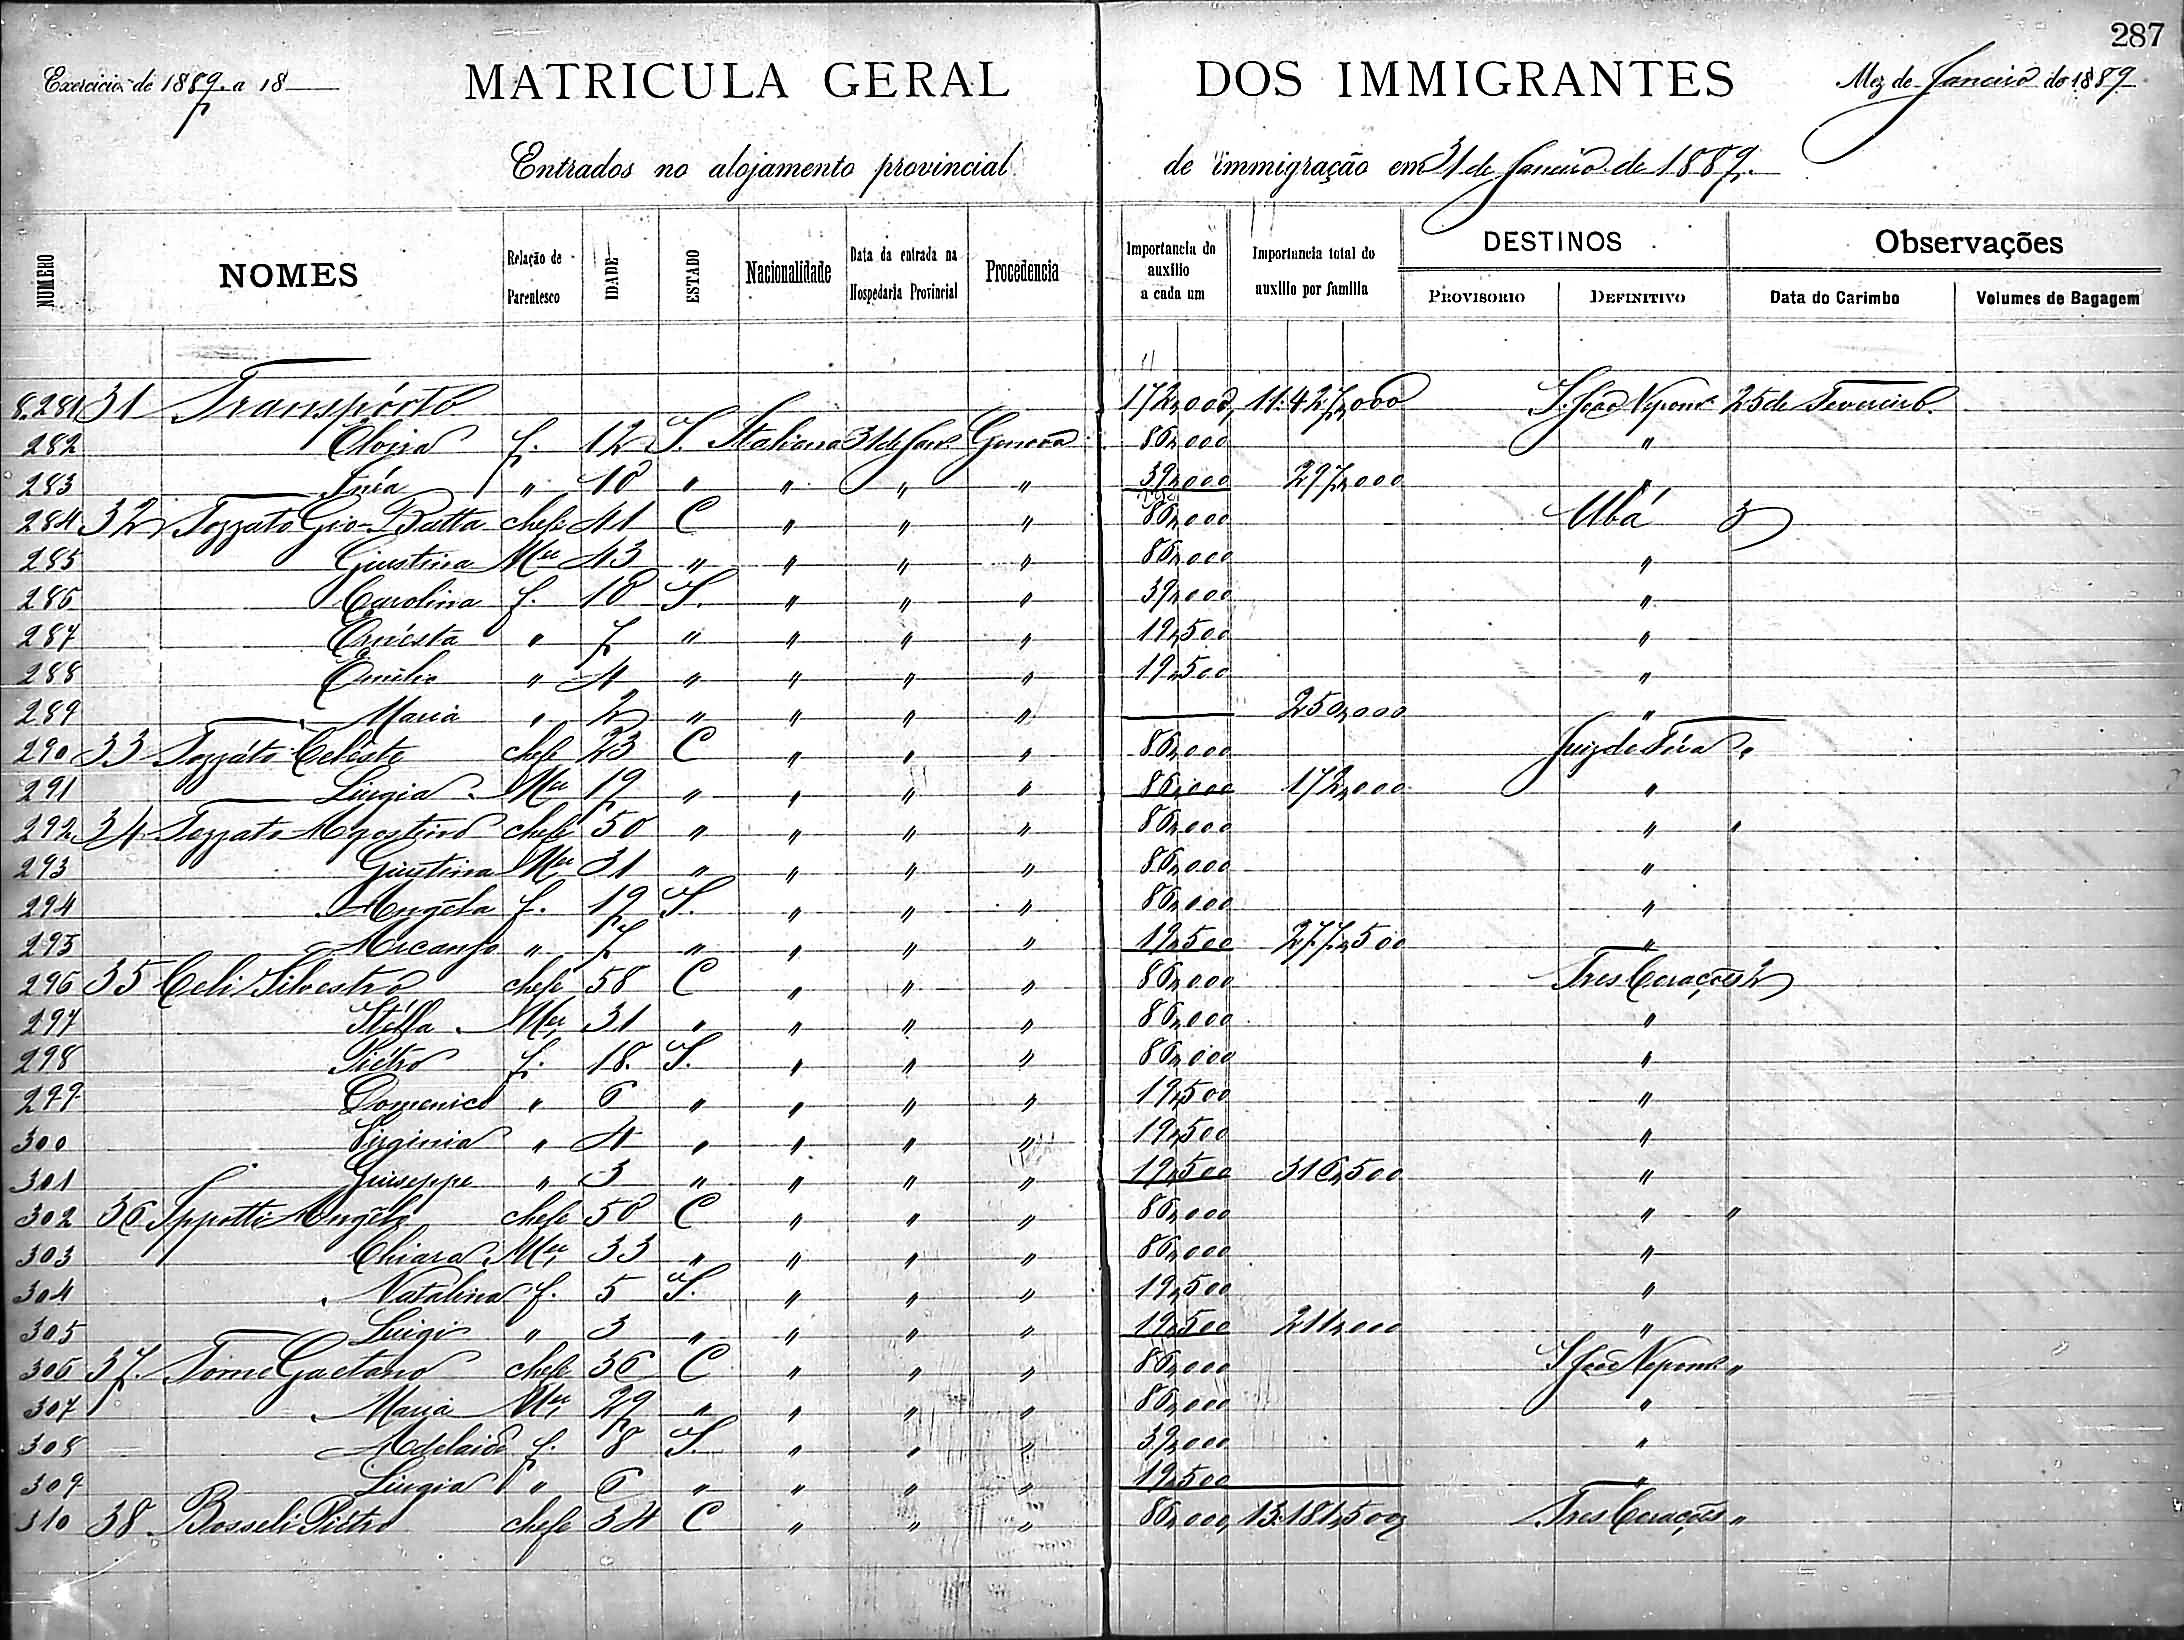 287
Exercicio de 1889 a 18
MATRICULA GERAL DOS IMMIGRANTES
Mez de Janeiro de 1889
Entrados no alojamento provincial de immigração em 31 de Janeiro de 1889.
NUMERO NOMES Relação de Parentesco IDADE ESTADO Nacionalidade Data da entrada na Hospedaria Provincial Procedencia Importancia do auxilio a cada um Importancia total do auxilio por familia DESTINOS PROVISORIO DEFINITIVO Observações Data do Carimbo Volumes de Bagagem
8.281 31 Transpórto 172,000 11:427,000 S. João Nepom. 25 de Fevereiro
282 f. 12 S. Italiana 31 de Jan. Genova 86,000 "
283 " 10 " " " " 39,000 297,000 "
284 32 Tozzato Gio-Batta chefe 41 C " " " 86,000 Ubá 3
285 Giustina Mer 43 " " " " 86,000 "
286 Carolina f. 10 S. " " " 39,000 "
287 Ernésta " 7 " " " " 19,500 "
288 Emilio " 4 " " " " 19,500 "
289 Maria " 2 " " " " 250,000 "
290 33 Tozzáto Celéste chefe 23 C " " " 86,000 Juiz de Fóra "
291 Luigia Mer 19 " " " " 86,000 172,000 "
292 34 Tozzato Agostino chefe 50 " " " " 86,000 " "
293 Giustina Mer 31 " " " " 86,000 "
294 Angéla f. 19 S. " " " 86,000 "
295 Arcanjo " 7 " " " " 19,500 277,500 "
296 35 Celi Silvestro chefe 58 C " " " 86,000 Tres Corações 2
297 Stélla Mer 31 " " " " 86,000 "
298 Piétro f. 18 S. " " " 86,000 "
299 Domenico " 6 " " " " 19,500 "
300 Virginia " 4 " " " " 19,500 "
301 Giuseppe " 3 " " " " 19,500 316,500 "
302 36 Ippotti Angélo chefe 50 C " " " 86,000 " "
303 Chiara Mer 33 " " " " 86,000 "
304 Natalina f. 5 S. " " " 19,500 "
305 Luigi " 3 " " " " 19,500 211,000 "
306 37 Tome Gaetano chefe 36 C " " " 86,000 S. João Nepom. "
307 Maria Mer 29 " " " " 86,000 "
308 Adelaide f. 8 S. " " " 39,000 "
309 Luigia " 6 " " " " 19,500 "
310 38 Bosseli Piétro chefe 34 C " " " 86,000 13:181,500 Tres Corações "